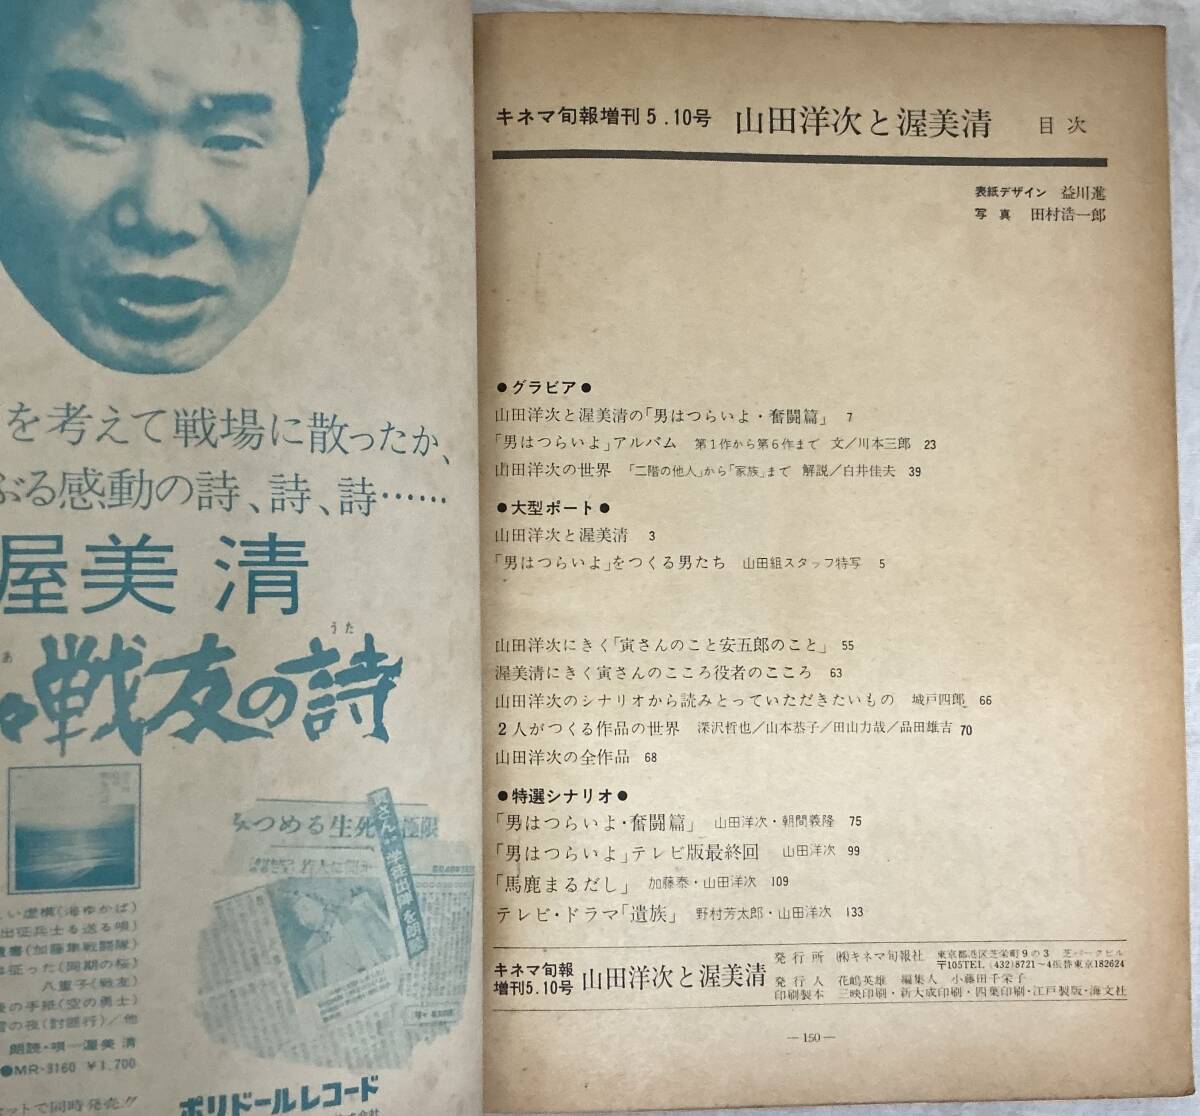 を考えて戦場に散ったか、
ぶる感動の詩、詩、詩……
渥美清
うた
あ
戦友の詩
みつめる生死 極限
寅さんが"学徒出陣"を朗読
しい虚構(海ゆかば)
出征兵士を送る唄)
遺書(加藤隼戦闘隊)
征った(同期の桜)
八重子(戦友)
後の手紙(空の勇士)
雪の夜(討匪行)/他
朗読・唄―渥美 清
●MR-3160 ¥1,700
ポリドールレコード
セットで同時発売!!
キネマ旬報増刊5.10号 山田洋次と渥美清 目次
表紙デザイン 益川進
写真 田村浩一郎
●グラビア●
山田洋次と渥美清の「男はつらいよ・奮闘篇」 7
「男はつらいよ」アルバム 第1作から第6作まで 文/川本三郎 23
山田洋次の世界 「二階の他人」から「家族」まで 解説/白井佳夫 39
●大型ポート●
山田洋次と渥美清 3
「男はつらいよ」をつくる男たち 山田組スタッフ特写 5
山田洋次にきく「寅さんのこと安五郎のこと」 55
渥美清にきく寅さんのこころ役者のこころ 63
山田洋次のシナリオから読みとっていただきたいもの 城戸四郎 66
2人がつくる作品の世界 深沢哲也/山本恭子/田山力哉/品田雄吉 70
山田洋次の全作品 68
●特選シナリオ●
「男はつらいよ・奮闘篇」 山田洋次・朝間義隆 75
「男はつらいよ」テレビ版最終回 山田洋次 99
「馬鹿まるだし」 加藤泰・山田洋次 109
テレビ・ドラマ「遺族」 野村芳太郎・山田洋次 133
キネマ旬報増刊5.10号 山田洋次と渥美清
発行所 ㈱キネマ旬報社 東京都港区芝栄町9の3 芝パークビル
〒105TEL(432)8721~4振替東京182624
発行人 花嶋英雄 編集人 小藤田千栄子
印刷製本 三映印刷・新大成印刷・四葉印刷・江戸製版・海文社
―150―